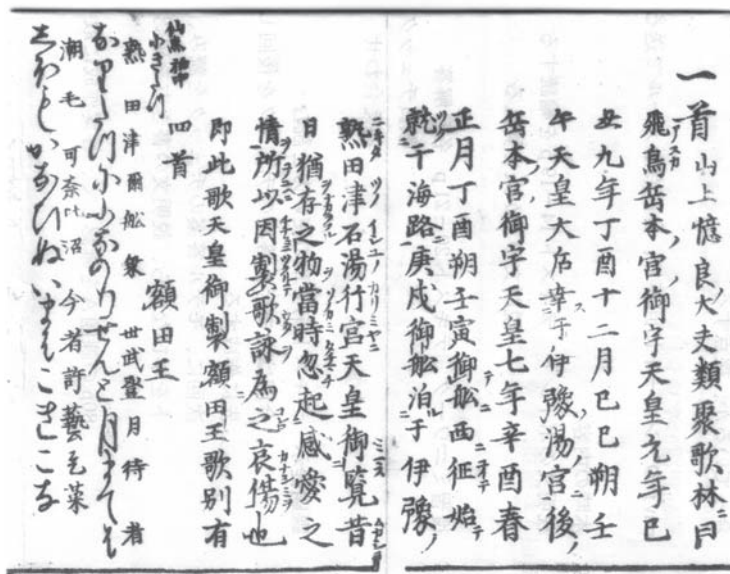 一首山上憶良大丈類聚歌林曰
飛鳥岳本宮御宇天皇元年己
丑九年丁酉十二月己巳朔壬
午天皇大后幸于伊豫湯宮後
岳本宮御宇天皇七年辛酉春
正月丁酉朔壬寅御舩西征始
就于海路庚戌御舩泊于伊豫
熟田津石湯行宮天皇御覧昔
日猶存之物當時忽起感愛之
情所以因製歌詠為之哀傷也
即此歌天皇御製額田王歌別有
四首
額田王
熱田津爾舩乗世武登月待者
なりたつにふなのりせんと月まては
潮毛可奈比沼今者許藝乞菜
しほもかなひぬいまはこきこな